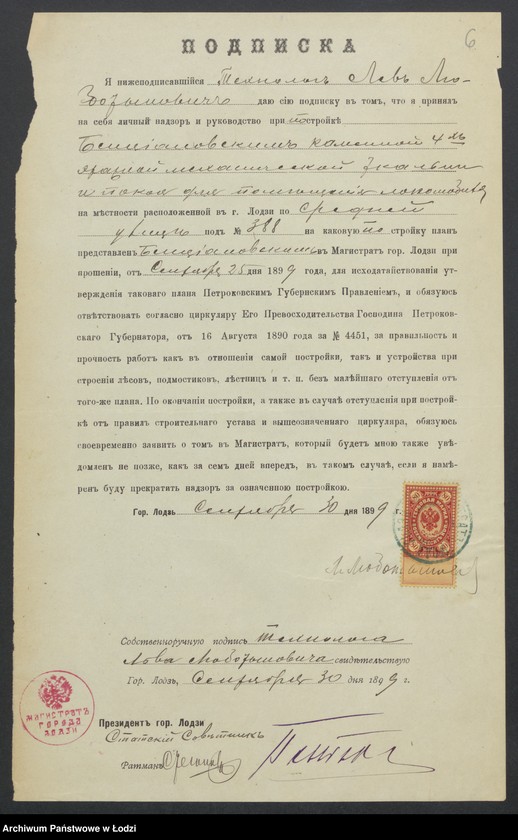 6
ПОДПИСКА
Я нижеподписавшійся Технологъ Левъ Лю-
ботыновичъ даю сію подписку въ томъ, что я принялъ
на себя личный надзоръ и руководство при постройкѣ
каменной 4хъ
этажной механической ткальни
и покоя для помѣщенія локомобиля
на мѣстности расположенной въ г. Лодзи по Средней
улицѣ подъ № 388 на каковую постройку планъ
представленъ въ Магистратъ гор. Лодзи при
прошеніи, отъ Сентября 25 дня 1899 года, для исходатайствованія ут-
вержденія таковаго плана Петроковскимъ Губернскимъ Правленіемъ, и обязуюсь
отвѣтствовать согласно циркуляру Его Превосходительства Господина Петроков-
скаго Губернатора, отъ 16 Августа 1890 года за № 4451, за правильность и
прочность работъ какъ въ отношеніи самой постройки, такъ и устройства при
строеніи лѣсовъ, подмостиковъ, лѣстницъ и т. п. безъ малѣйшаго отступленія отъ
того-же плана. По окончаніи постройки, а также въ случаѣ отступленія при построй-
кѣ отъ правилъ строительнаго устава и вышеозначеннаго циркуляра, обязуюсь
своевременно заявить о томъ въ Магистратъ, который будетъ мною также увѣ-
домленъ не позже, какъ за семь дней впередъ, въ такомъ случаѣ, если я намѣ-
ренъ буду прекратить надзоръ за означенною постройкою.
Гор. Лодзь Сентября 30 дня 1899 г.
Собственноручную подпись Технолога
Льва свидѣтельствую
Гор. Лодзь, Сентября 30 дня 1899 г.
МАГИСТРАТЪ
ГОРОДА
ЛОДЗИ
Президентъ гор. Лодзи
Статскій Совѣтникъ
Ратманъ
Archiwum Państwowe w Łodzi